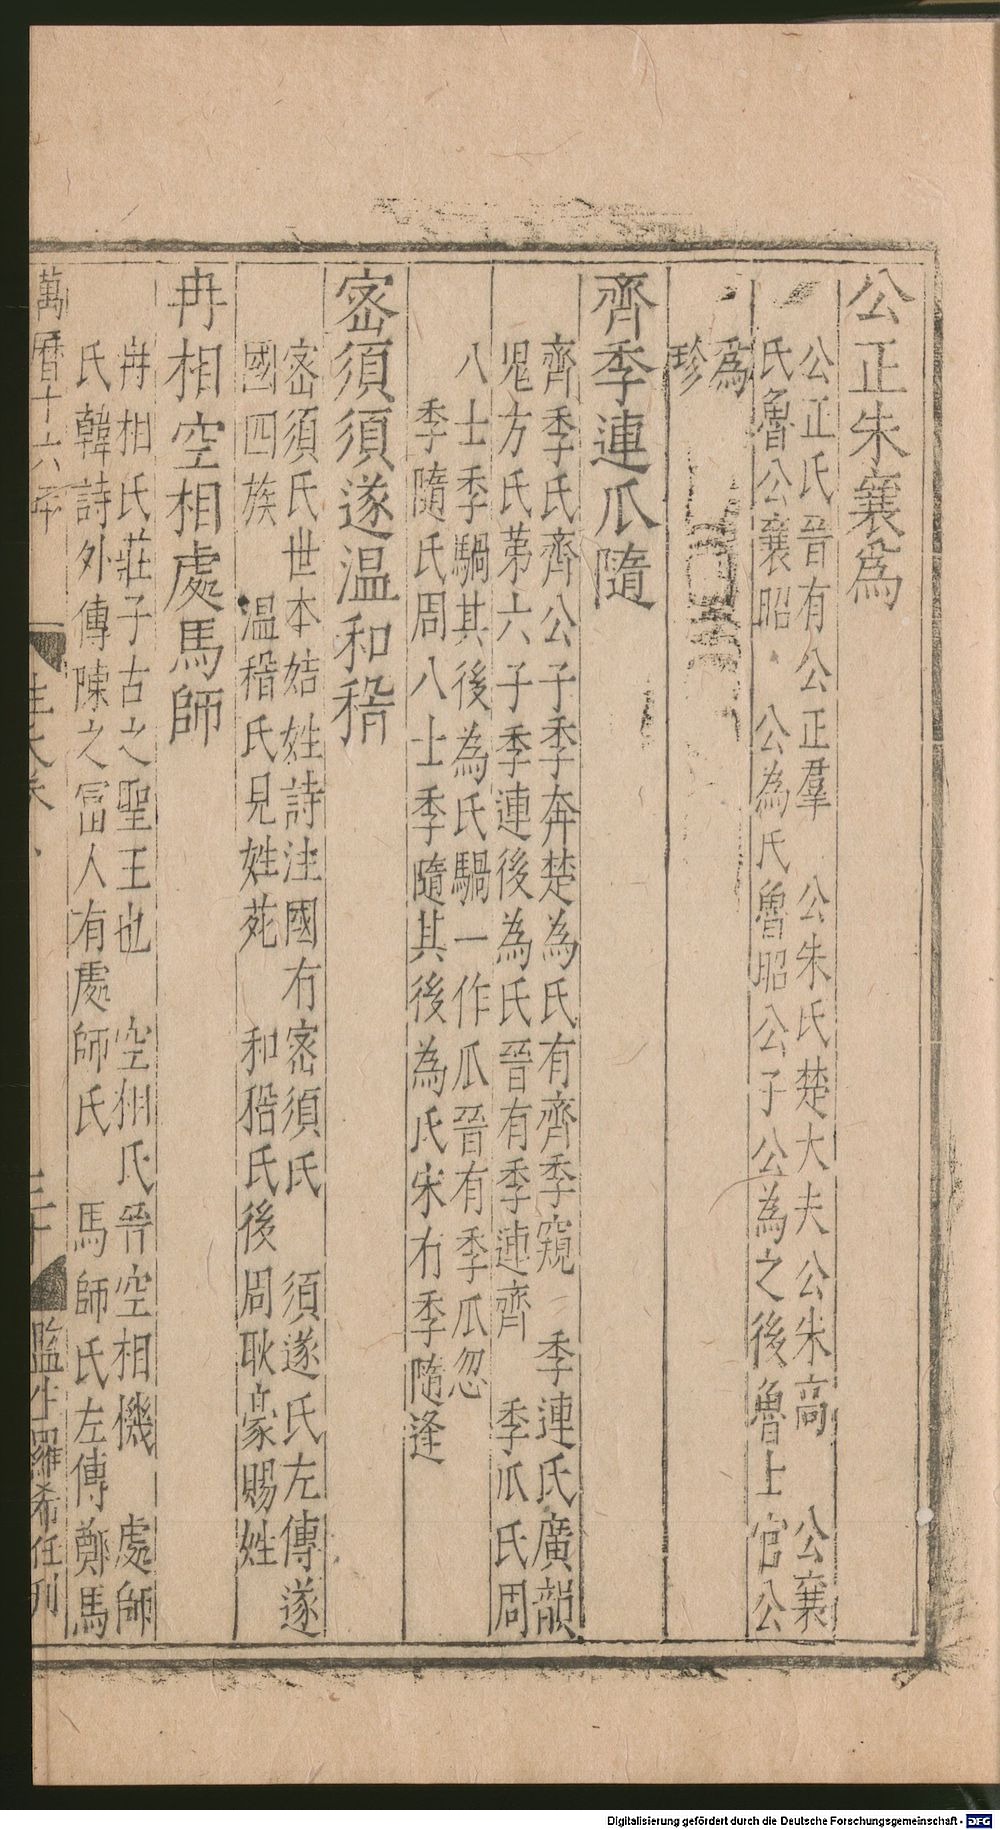 公正朱襄為
公正氏晉有公正羣　公朱氏楚大夫公朱高　公襄
氏魯公襄昭　公為氏魯昭公子公為之後魯士官公
為
珍
齊季連瓜隨
齊季氏齊公子季奔楚為氏有齊季窺　季連氏廣韻
鬼方氏苐六子季連後為氏晉有季連齊　季瓜氏周
八士季騧其後為氏騧一作瓜晉有季瓜忽
季隨氏周八士季隨其後為氏宋有季隨逢
宻須須遂温和稽
宻須氏世本姞姓詩注國有宻須氏　須遂氏左傳遂
國四族　温稽氏見姓苑　和稽氏後周耿豪賜姓
冉相空相處馬師
冉相氏莊子古之聖王也　空相氏晉空相機　處師
氏韓詩外傳陳之冨人有處師氏　馬師氏左傳鄭馬
萬曆十六年
監生羅希任刊
Digitalisierung gefördert durch die Deutsche Forschungsgemeinschaft - DFG